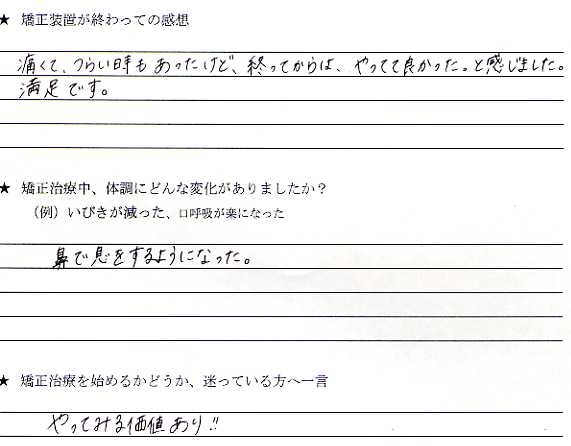 ★ 矯正装置が終わっての感想
痛くて、つらい時もあったけど、終ってからは、やってて良かった。と感じました。
満足です。
★ 矯正治療中、体調にどんな変化がありましたか？
（例）いびきが減った、口呼吸が楽になった
鼻で息をするようになった。
★ 矯正治療を始めるかどうか、迷っている方へ一言
やってみる価値あり!!